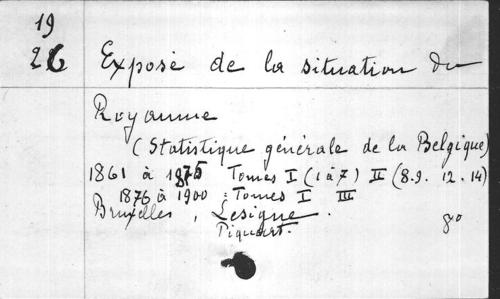 19
26 Exposé de la situation du
Royaume
(Statistique générale de la Belgique)
1861 à 1875 Tomes I (1 à 7) II (8.9. 12. 14)
1876 à 1900 : Tomes I III
Bruxelles, Lesigne.
Piquart. 8º